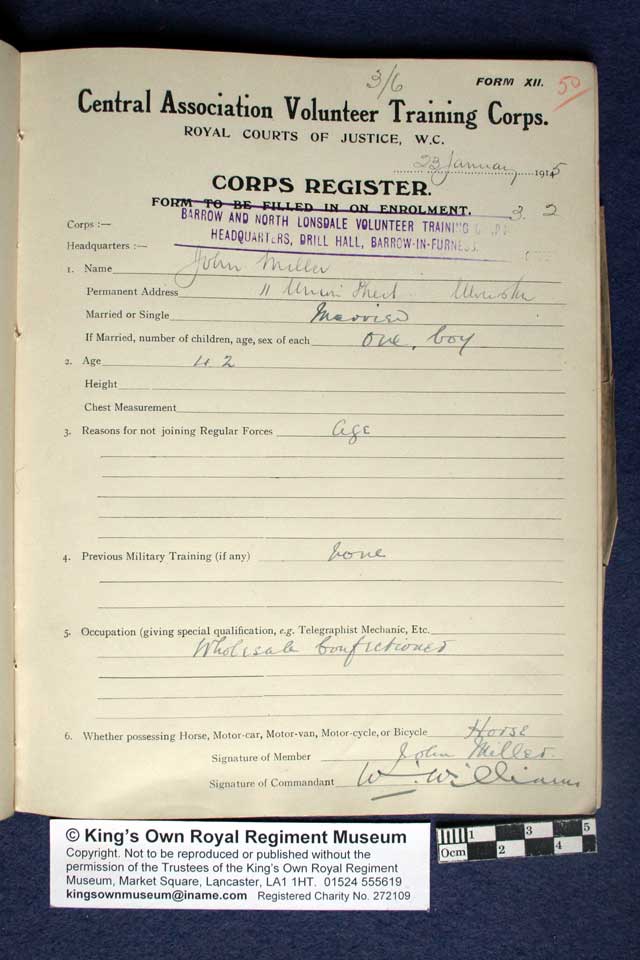 3/6 FORM XII. 50
Central Association Volunteer Training Corps.
ROYAL COURTS OF JUSTICE, W.C.
23 January 1915
CORPS REGISTER.
FORM TO BE FILLED IN ON ENROLMENT. 3. 2
Corps :— BARROW AND NORTH LONSDALE VOLUNTEER TRAINING
Headquarters :— HEADQUARTERS, DRILL HALL, BARROW-IN-FURNESS.
1. Name John Miller
Permanent Address 11 Union Street Ulverston
Married or Single Married
If Married, number of children, age, sex of each One, boy
2. Age 42
Height
Chest Measurement
3. Reasons for not joining Regular Forces Age
4. Previous Military Training (if any) none
5. Occupation (giving special qualification, e.g. Telegraphist Mechanic, Etc.
Wholesale Confectioner
6. Whether possessing Horse, Motor-car, Motor-van, Motor-cycle, or Bicycle Horse
Signature of Member John Miller.
Signature of Commandant W. Williams
© King's Own Royal Regiment Museum
Copyright. Not to be reproduced or published without the
permission of the Trustees of the King's Own Royal Regiment
Museum, Market Square, Lancaster, LA1 1HT. 01524 555619
kingsownmuseum@iname.com Registered Charity No. 272109
0cm 1 2 3 4 5